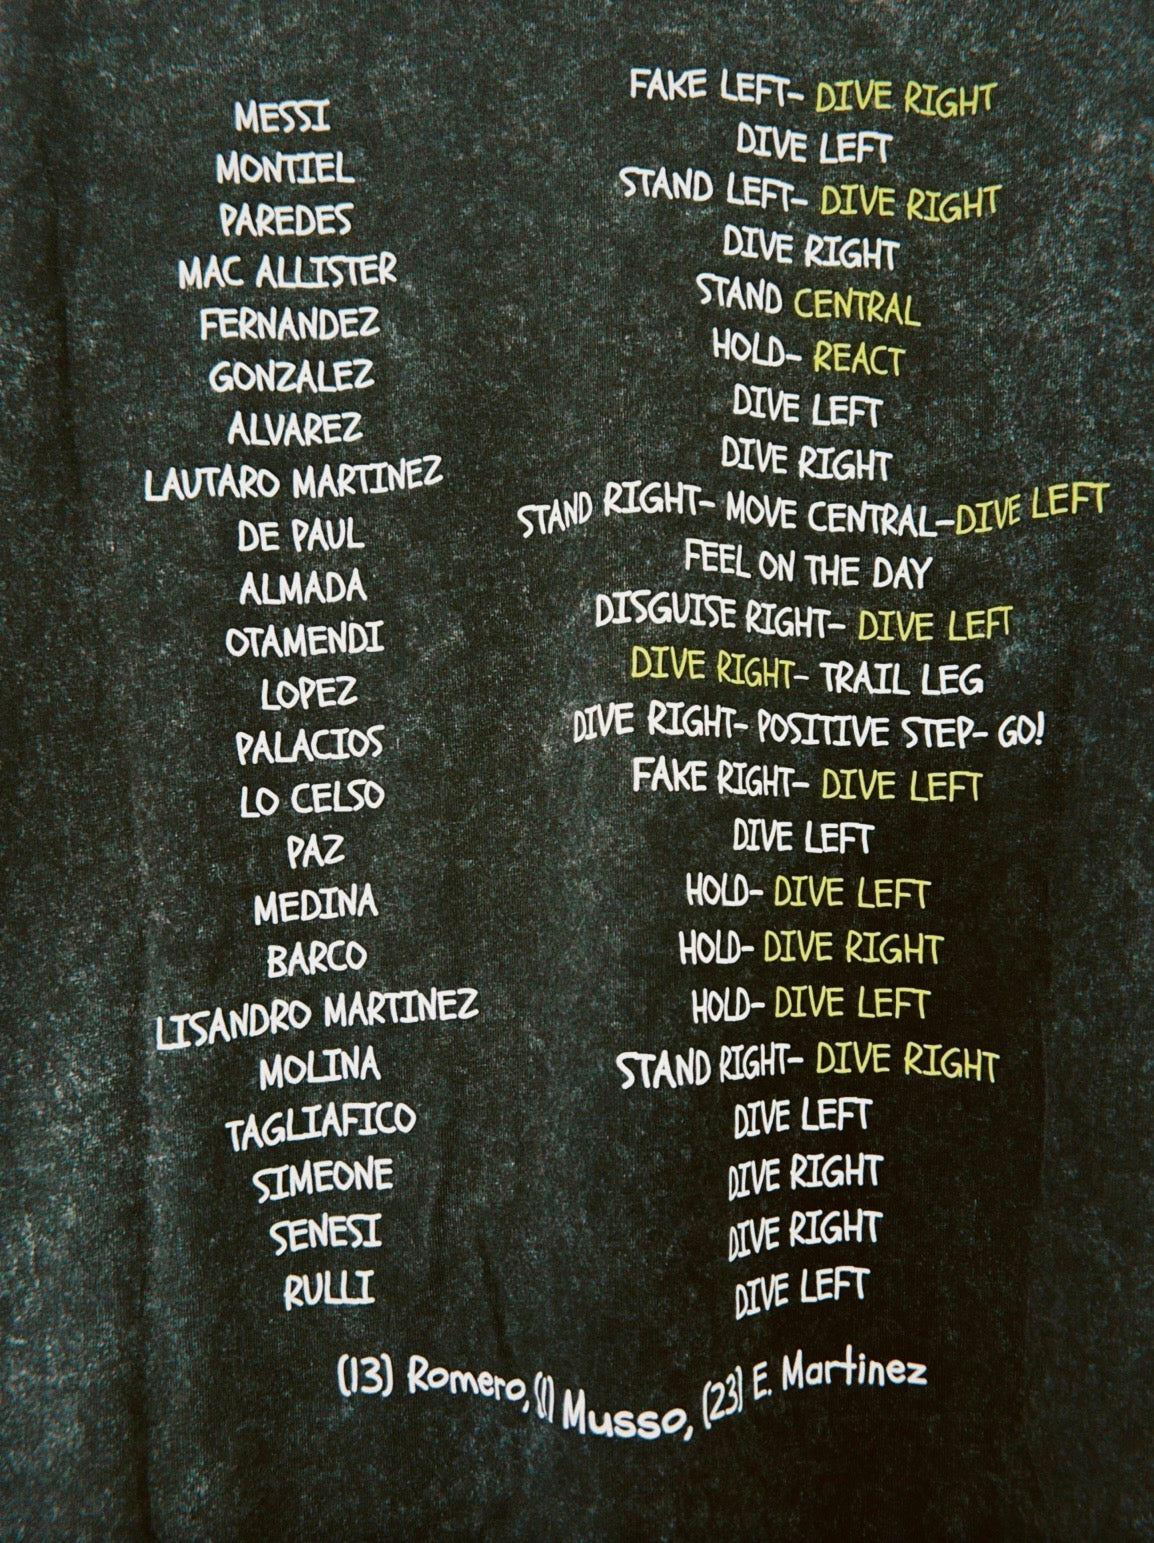 MESSI FAKE LEFT- DIVE RIGHT
MONTIEL DIVE LEFT
PAREDES STAND LEFT- DIVE RIGHT
MAC ALLISTER DIVE RIGHT
FERNANDEZ STAND CENTRAL
GONZALEZ HOLD- REACT
ALVAREZ DIVE LEFT
LAUTARO MARTINEZ DIVE RIGHT
DE PAUL STAND RIGHT- MOVE CENTRAL-DIVE LEFT
ALMADA FEEL ON THE DAY
OTAMENDI DISGUISE RIGHT- DIVE LEFT
LOPEZ DIVE RIGHT- TRAIL LEG
PALACIOS DIVE RIGHT- POSITIVE STEP- GO!
LO CELSO FAKE RIGHT- DIVE LEFT
PAZ DIVE LEFT
MEDINA HOLD- DIVE LEFT
BARCO HOLD- DIVE RIGHT
LISANDRO MARTINEZ HOLD- DIVE LEFT
MOLINA STAND RIGHT- DIVE RIGHT
TAGLIAFICO DIVE LEFT
SIMEONE DIVE RIGHT
SENESI DIVE RIGHT
RULLI DIVE LEFT
(13) Romero, (1) Musso, (23) E. Martinez